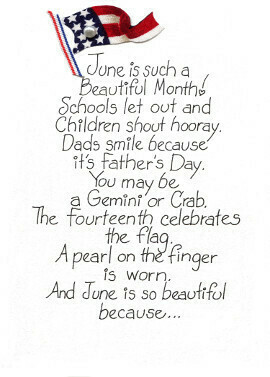 June is such a
Beautiful Month!
Schools let out and
Children shout hooray.
Dads smile because
it's Father's Day.
You may be
a Gemini or Crab.
The fourteenth celebrates
the flag.
A pearl on the finger
is worn.
And June is so beautiful
because...